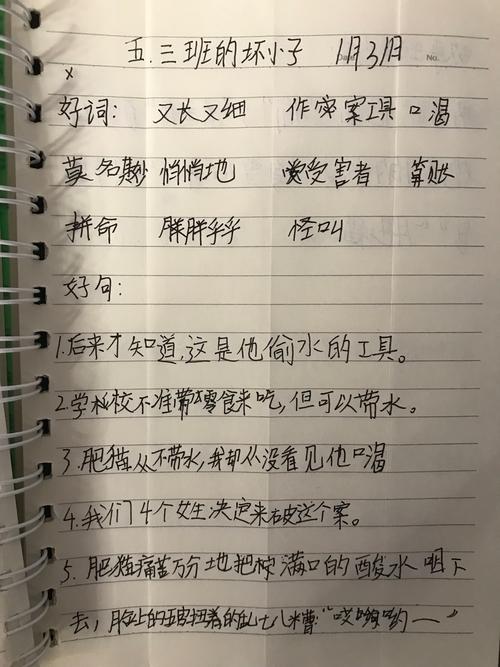 五.三班的坏小子 1月31月
Date No.
x
好词: 又长又细 作案工具 口渴
莫名其妙 悄悄地 受害者 算账
拼命 胖胖乎乎 怪叫
好句:
1.后来才知道,这是他偷水的工具。
2.学校不准带零食来吃,但可以带水。
3.肥猫从不带水,我却从没看见他口渴
4.我们4个女生决定来破这个案。
5.肥猫痛苦万分地把满口的酸水咽下
去,脸上的五官扭着的乱七八糟:“哎哟哟——”